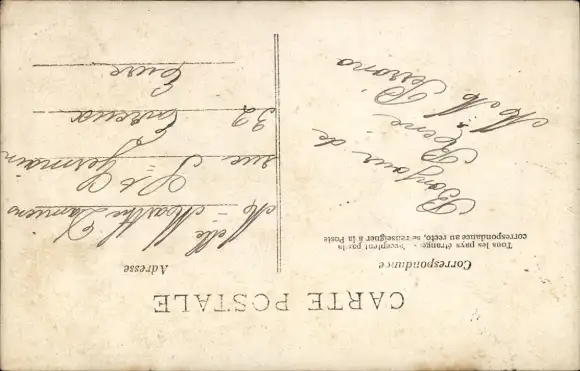 CARTE POSTALE
Correspondance
Tous les pays étrangers n'acceptent pas la
correspondance au recto, se renseigner à la Poste
Bonjour de
René
M & M Perrono
Adresse
Melle
Marthe
rue St Germain
32
Evreux
Eure